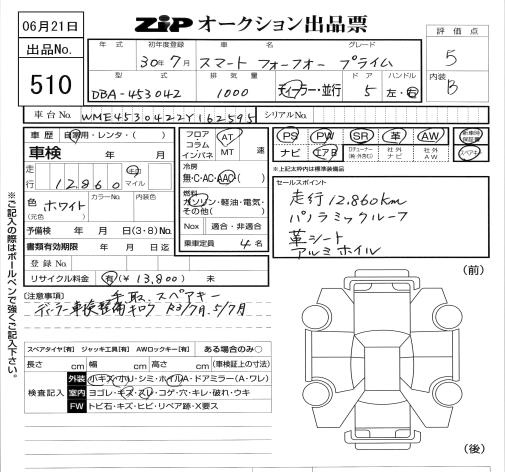 06月21日
ZIP オークション出品票
評価点
5
内装
B
出品No.
510
年式
初年度登録
30年7月
車名
スマート フォーフォー
グレード
プライム
型式
DBA-453042
排気量
1000
ディーラー・並行
ドア
5
ハンドル
左・右
車台No. WME4530422Y162595
シリアルNo.
車歴 自家用・レンタ・( )
車検 年 月
走行 12,860 キロ マイル
色 (元色) ホワイト カラーNo. 内装色
予備検 年 月 日(3・8)No.
書類有効期限 年 月 日迄
登録No.
リサイクル料金 有(¥ 13,800 ) 未
フロア コラム インパネ AT MT 速
冷房 無・C・AC・AAC・( )
燃料 ガソリン・軽油・電気・その他( )
Nox 適合・非適合
乗車定員 4 名
PS PW SR 革 AW 新車時保証書
ナビ エアB 社外ナビ 社外AW スペアキー
※上記太枠内は標準装備品
セールスポイント
走行12.860km
パノラミックルーフ
革シート
アルミホイル
[注意事項] 手取.スペアキー
※ご記入の際はボールペンで強くご記入下さい。
スペアタイヤ[有] ジャッキ工具[有] AWロックキー[有] ある場合のみ○
長さ cm 幅 cm 高さ cm (車検証上の寸法)
検査記入
外装 小キズ・ホリ・シミ・ホイルA・ドアミラー(A・ワレ)
室内 ヨゴレ・キズ・スレ・コゲ・穴・キレ・破れ・ウキ
FW トビ石・キズ・ヒビ・リペア跡・X要ス
(前)
(後)